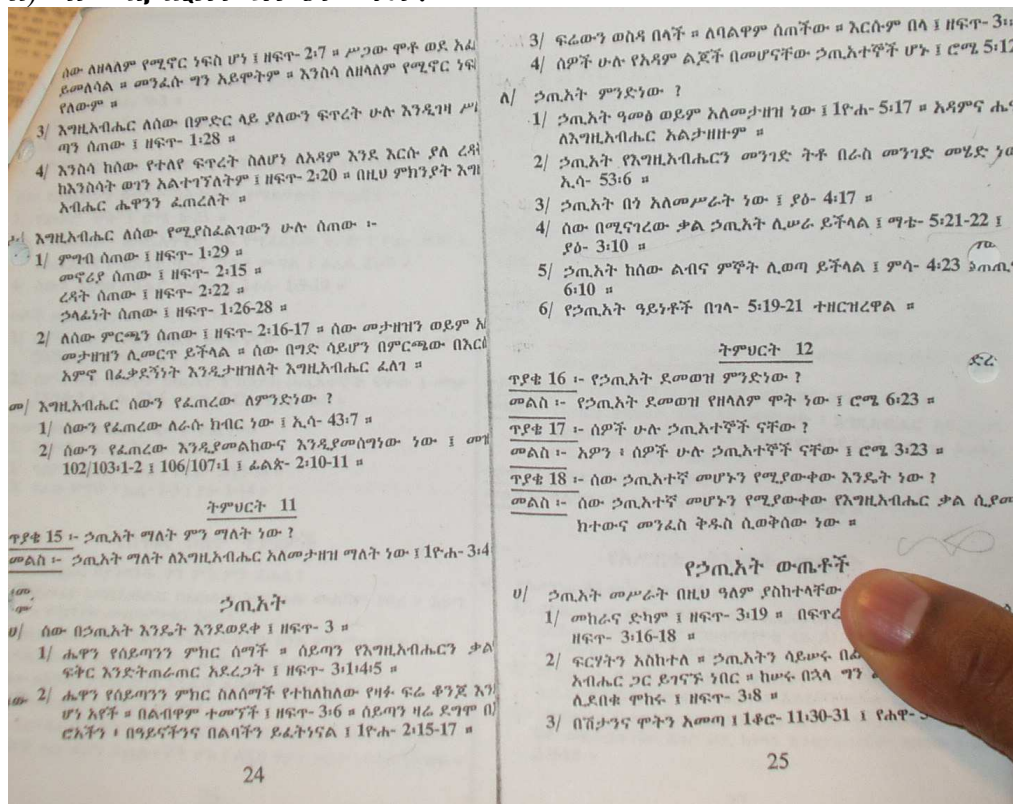 ሰው ለዘላለም የሚኖር ነፍስ ሆነ ፤ ዘፍጥ- 2፡7 ። ሥጋው ሞቶ ወደ አፈ
ይመለሳል ። መንፈሱ ግን አይሞትም ። እንስሳ ለዘላለም የሚኖር ነፍ
የለውም ።
3/ እግዚአብሔር ለሰው በምድር ላይ ያለውን ፍጥረት ሁሉ እንዲገዛ ሥ
ጣን ሰጠው ፤ ዘፍጥ- 1፡28 ።
4/ እንስሳ ከሰው የተለየ ፍጥረት ስለሆነ ለአዳም እንደ እርሱ ያለ ረዳ
ከእንስሳት ወገን አልተገኘለትም ፤ ዘፍጥ- 2፡20 ። በዚህ ምክንያት እግ
አብሔር ሔዋንን ፈጠረለት ።
እግዚአብሔር ለሰው የሚያስፈልገውን ሁሉ ሰጠው ፡-
1/ ምግብ ሰጠው ፤ ዘፍጥ- 1፡29 ።
መኖሪያ ሰጠው ፤ ዘፍጥ- 2፡15 ።
ረዳት ሰጠው ፤ ዘፍጥ- 2፡22 ።
ኃላፊነት ሰጠው ፤ ዘፍጥ- 1፡26-28 ።
2/ ለሰው ምርጫን ሰጠው ፤ ዘፍጥ- 2፡16-17 ። ሰው መታዘዝን ወይም አ
መታዘዝን ሊመርጥ ይችላል ። ሰው በግድ ሳይሆን በምርጫው በእር
አምኖ በፈቃደኝነት እንዲታዘዝለት እግዚአብሔር ፈለገ ።
መ/ እግዚአብሔር ሰውን የፈጠረው ለምንድነው ?
1/ ሰውን የፈጠረው ለራሱ ክብር ነው ፤ ኢሳ- 43፡7 ።
2/ ሰውን የፈጠረው እንዲያመልከውና እንዲያመሰግነው ነው ፤ መዝ
102/103፡1-2 ፤ 106/107፡1 ፤ ፊልጵ- 2፡10-11 ።
ትምህርት 11
ጥያቄ 15 ፡- ኃጢአት ማለት ምን ማለት ነው ?
መልስ ፡- ኃጢአት ማለት ለእግዚአብሔር አለመታዘዝ ማለት ነው ፤ 1ዮሐ- 3፡4
ኃጢአት
ሀ/ ሰው በኃጢአት እንዴት እንደወደቀ ፤ ዘፍጥ- 3 ።
1/ ሔዋን የሰይጣንን ምክር ሰማች ። ሰይጣን የእግዚአብሔርን ቃል
ፍቅር እንድትጠራጠር አደረጋት ፤ ዘፍጥ- 3፡1፡4፡5 ።
2/ ሔዋን የሰይጣንን ምክር ስለሰማች የተከለከለው የዛፉ ፍሬ ቆንጆ እን
ሆነ አየች ። በልብዋም ተመኘች ፤ ዘፍጥ- 3፡6 ። ሰይጣን ዛሬ ደግሞ በ
ሮአችን ፡ በዓይናችንና በልባችን ይፈትነናል ፤ 1ዮሐ- 2፡15-17 ።
24
3/ ፍሬውን ወስዳ በላች ። ለባልዋም ሰጠችው ። እርሱም በላ ፤ ዘፍጥ- 3፡
4/ ሰዎች ሁሉ የአዳም ልጆች በመሆናቸው ኃጢአተኞች ሆኑ ፤ ሮሜ 5፡12
ለ/ ኃጢአት ምንድነው ?
1/ ኃጢአት ዓመፅ ወይም አለመታዘዝ ነው ፤ 1ዮሐ- 5፡17 ። አዳምና ሔ
ለእግዚአብሔር አልታዘዙም ።
2/ ኃጢአት የእግዚአብሔርን መንገድ ትቶ በራስ መንገድ መሄድ ነው
ኢሳ- 53፡6 ።
3/ ኃጢአት በጎ አለመሥራት ነው ፤ ያዕ- 4፡17 ።
4/ ሰው በሚናገረው ቃል ኃጢአት ሊሠራ ይችላል ፤ ማቴ- 5፡21-22 ፤
ያዕ- 3፡10 ።
5/ ኃጢአት ከሰው ልብና ምኞት ሊወጣ ይችላል ፤ ምሳ- 4፡23
6፡10 ።
6/ የኃጢአት ዓይነቶች በገላ- 5፡19-21 ተዘርዝረዋል ።
ትምህርት 12
ጥያቄ 16 ፡- የኃጢአት ደመወዝ ምንድነው ?
መልስ ፡- የኃጢአት ደመወዝ የዘላለም ሞት ነው ፤ ሮሜ 6፡23 ።
ጥያቄ 17 ፡- ሰዎች ሁሉ ኃጢአተኞች ናቸው ?
መልስ ፡- አዎን ፡ ሰዎች ሁሉ ኃጢአተኞች ናቸው ፤ ሮሜ 3፡23 ።
ጥያቄ 18 ፡- ሰው ኃጢአተኛ መሆኑን የሚያውቀው እንዴት ነው ?
መልስ ፡- ሰው ኃጢአተኛ መሆኑን የሚያውቀው የእግዚአብሔር ቃል ሲያመ
ከተውና መንፈስ ቅዱስ ሲወቅሰው ነው ።
የኃጢአት ውጤቶች
ሀ/ ኃጢአት መሥራት በዚህ ዓለም ያስከተላቸው
1/ መከራና ድካም ፤ ዘፍጥ- 3፡19 ። በፍጥረ
ዘፍጥ- 3፡16-18 ።
2/ ፍርሃትን አስከተለ ። ኃጢአትን ሳይሠሩ በፊ
አብሔር ጋር ይገናኙ ነበር ። ከሠሩ በኋላ ግን
ሊደበቁ ሞከሩ ፤ ዘፍጥ- 3፡8 ።
3/ በሽታንና ሞትን አመጣ ፤ 1ቆሮ- 11፡30-31 ፤ የሐዋ-
25